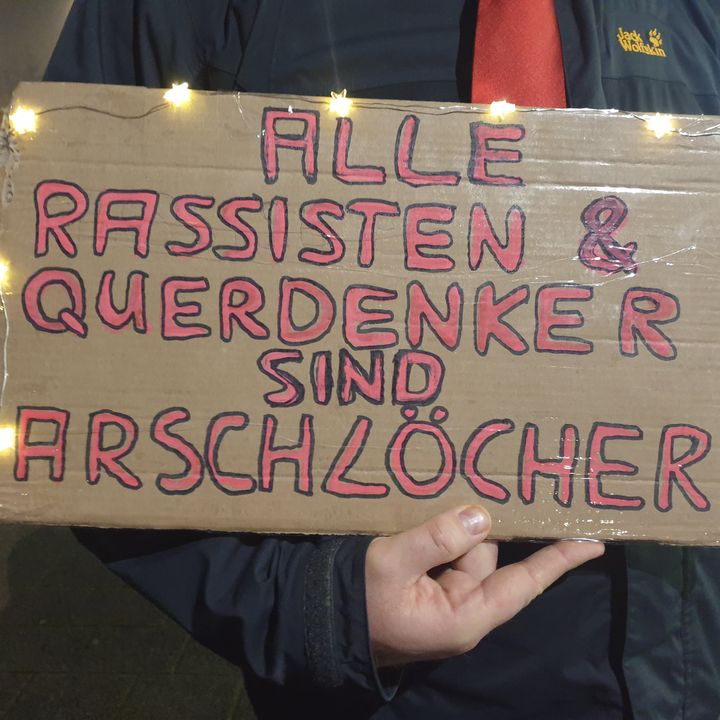 Jack
Wolfskin
ALLE
RASSISTEN &
QUERDENKER
SIND
ARSCHLÖCHER